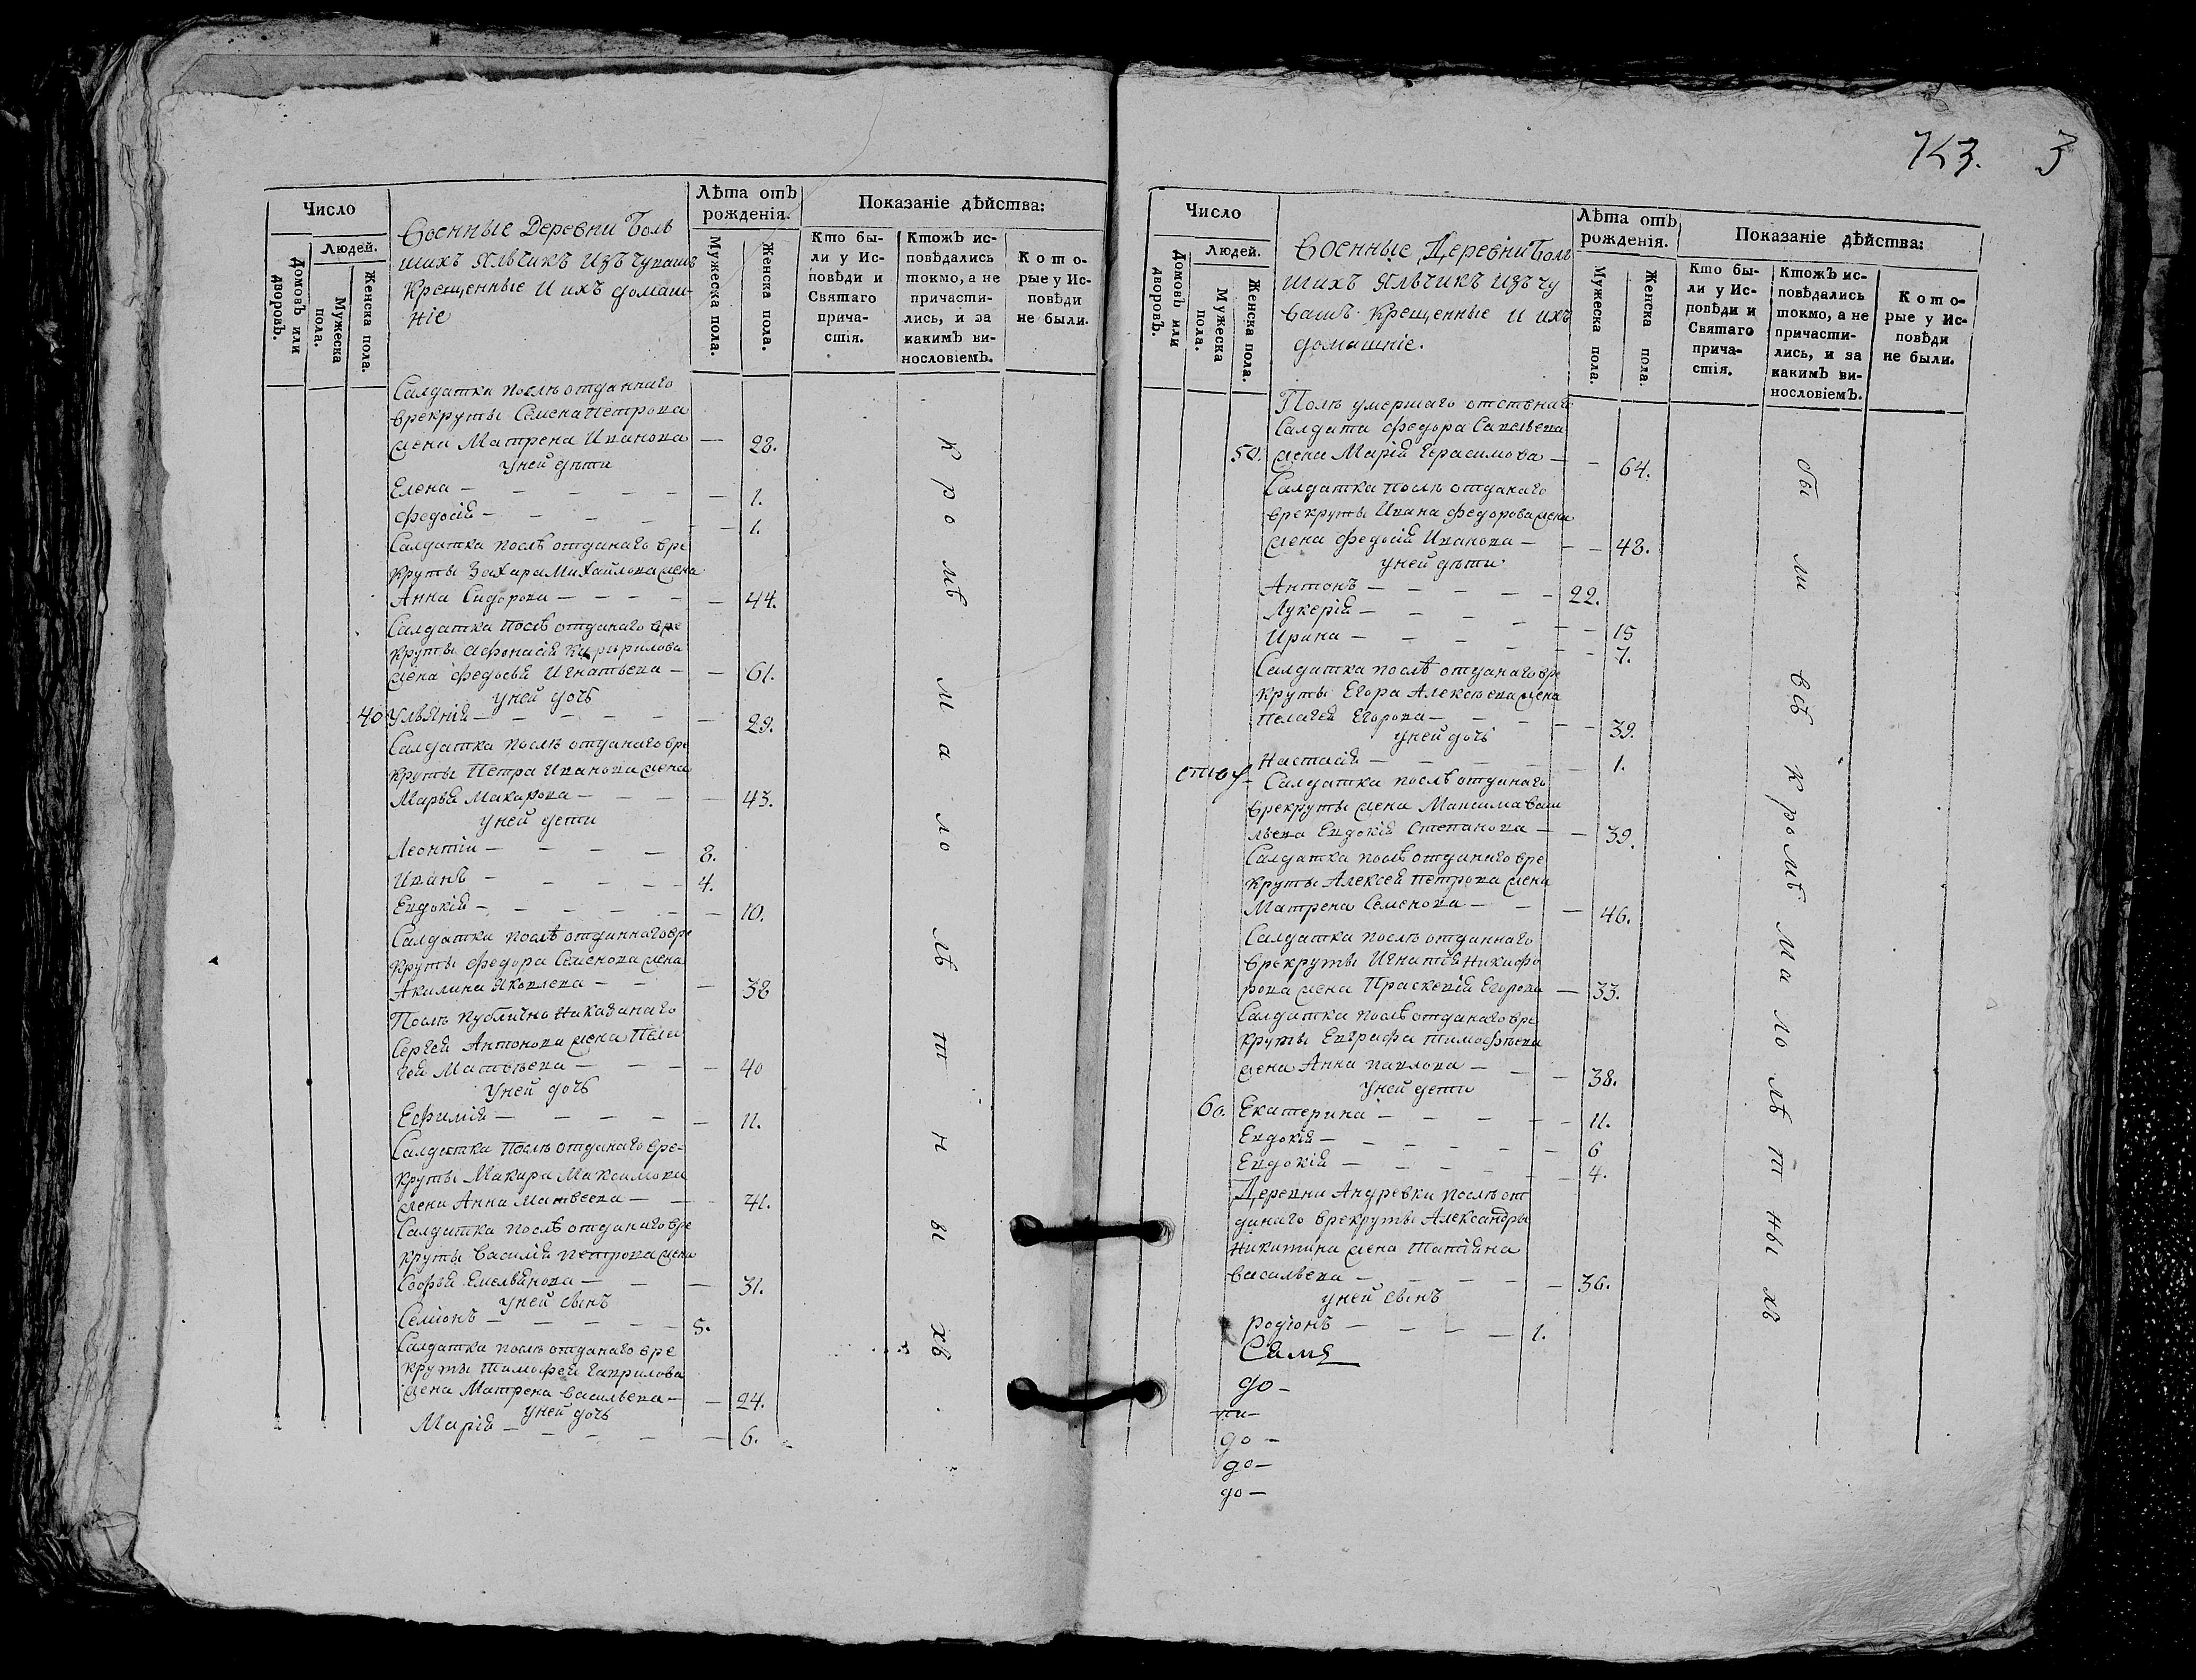 Число
Людей.
Домовъ или дворовъ.
Мужеска пола.
Женска пола.
Военные Деревни Боль
шихъ Яльчикъ Изъ Чувашъ
Крещенные И ихъ домаш-
ніе
Лѣта отъ
рожденія.
Мужеска пола.
Женска пола.
Показаніе дѣйства:
Кто бы-
ли у Ис-
повѣди и
Святаго
прича-
стія.
Ктожъ ис-
повѣдались
токмо, а не
причасти-
лись, и за
какимъ ви-
нословіемъ.
К о т о-
рые у Ис-
повѣди
не были.
Салдатка послѣ отданнаго
врекруты Семена Петрова
жена Матрена Иванова — 28.
Уней дѣти
Елена — 1.
Федосія — 1.
Салдатка послѣ отданаго вре
круты Захара Михайлова жена
Анна Сидорова — 44.
Салдатка послѣ отданаго вре
круты Афонасія Кирилова
жена Федосья Игнатьева — 61.
уней дочь
40 Ульянія — 29.
Салдатка послѣ отданаго вре
круты Петра Иванова жена
Марья Макарова — 43.
уней дети
Леонтій — 8.
Иванъ — 4.
Евдокія — 10.
Салдатка послѣ отданнаго вре
круты Федора Семенова жена
Акилина Яковлева — 38
Послѣ публично Наказанаго
Сергея Антонова жена Пела
гея Матвѣева — 40
Уней дочь
Ефимія — 11.
Салдатка послѣ отданаго вре-
круты Макара Максимова
жена Анна Матвеева — 41.
Салдатка послѣ отданаго вре
круты Василія Петрова жена
Софья Емельянова — 31.
уней сынъ
Семіонъ — 5.
Салдатка послѣ отданаго вре
круты Тимофея Гаврилова
жена Матрена Васильева — 24.
Уней дочь
Марія — 6.
к р о мѣ м а ло лѣ т н ы хъ
743. 3
Число
Людей.
Домовъ или дворовъ.
Мужеска пола.
Женска пола.
Военные Деревни Боль
шихъ Яльчикъ изъ Чу
вашъ Крещенные И ихъ
домашніе.
Лѣта отъ
рожденія.
Мужеска пола.
Женска пола.
Показаніе дѣйства:
Кто бы-
ли у Ис-
повѣди и
Святаго
прича-
стія.
Ктожъ ис-
повѣдались
токмо, а не
причасти-
лись, и за
какимъ ви-
нословіемъ.
К о т о-
рые у Ис-
повѣди
не были.
Послѣ умершаго отставнаго
Салдата Федора Савельева
50. жена Марія Герасимова — 64.
Салдатка послѣ отданаго
врекруты Ивана Федорова жена
жена Федосія Иванова — 48.
уней дѣти
Антонъ — 22.
Лукерія — 15
Ирина — 7.
Салдатка послѣ отданаго вре
круты Егора Алексѣева жена
Пелагея Егорова — 39.
уней дочь
Настасія — 1.
Салдатка послѣ отданаго
врекруты жена Максима Васи
льева Евдокія Степанова — 39.
Салдатка послѣ отданаго вре
круты Алексея Петрова жена
Матрена Семенова — 46.
Салдатка послѣ отданнаго
врекруты Игнатія Никифо
рова жена Прасковія Егорова — 33.
Салдатка послѣ отданаго вре
круты Евграфа Тимофѣева
жена Анна Павлова — 38.
Уней дети
60. Екатерина — 11.
Евдокія — 6
Евдокія — 4.
Деревни Андревки послѣ от
данаго врекруты Александры
Никитина жена Татіяна
Васильева — 36.
уней сынъ
родіонъ — 1.
до —
до —
до —
до —
бы ли всѣ к ро мѣ м а ло лѣ т ны хъ